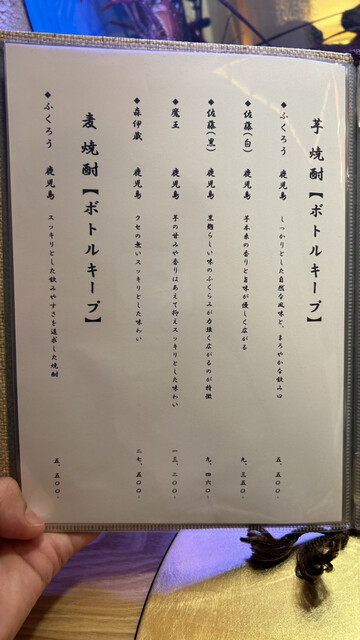 芋焼酎【ボトルキープ】
◆ふくろう 鹿児島 しっかりとした自然な風味と、まろやかな飲み口 五、五〇〇-
◆佐藤(白) 鹿児島 芋本来の香りと旨味が優しく広がる 九、三五〇-
◆佐藤(黒) 鹿児島 黒麹らしい味のふくらみが力強く広がるのが特徴 九、四六〇-
◆魔王 鹿児島 芋の甘みや香りはあえて抑えスッキリとした味わい 一三、二〇〇-
◆森伊蔵 鹿児島 クセの無いスッキリとした味わい 二七、五〇〇-
麦焼酎【ボトルキープ】
◆ふくろう 鹿児島 スッキリとした飲みやすさを追求した焼酎 五、五〇〇-